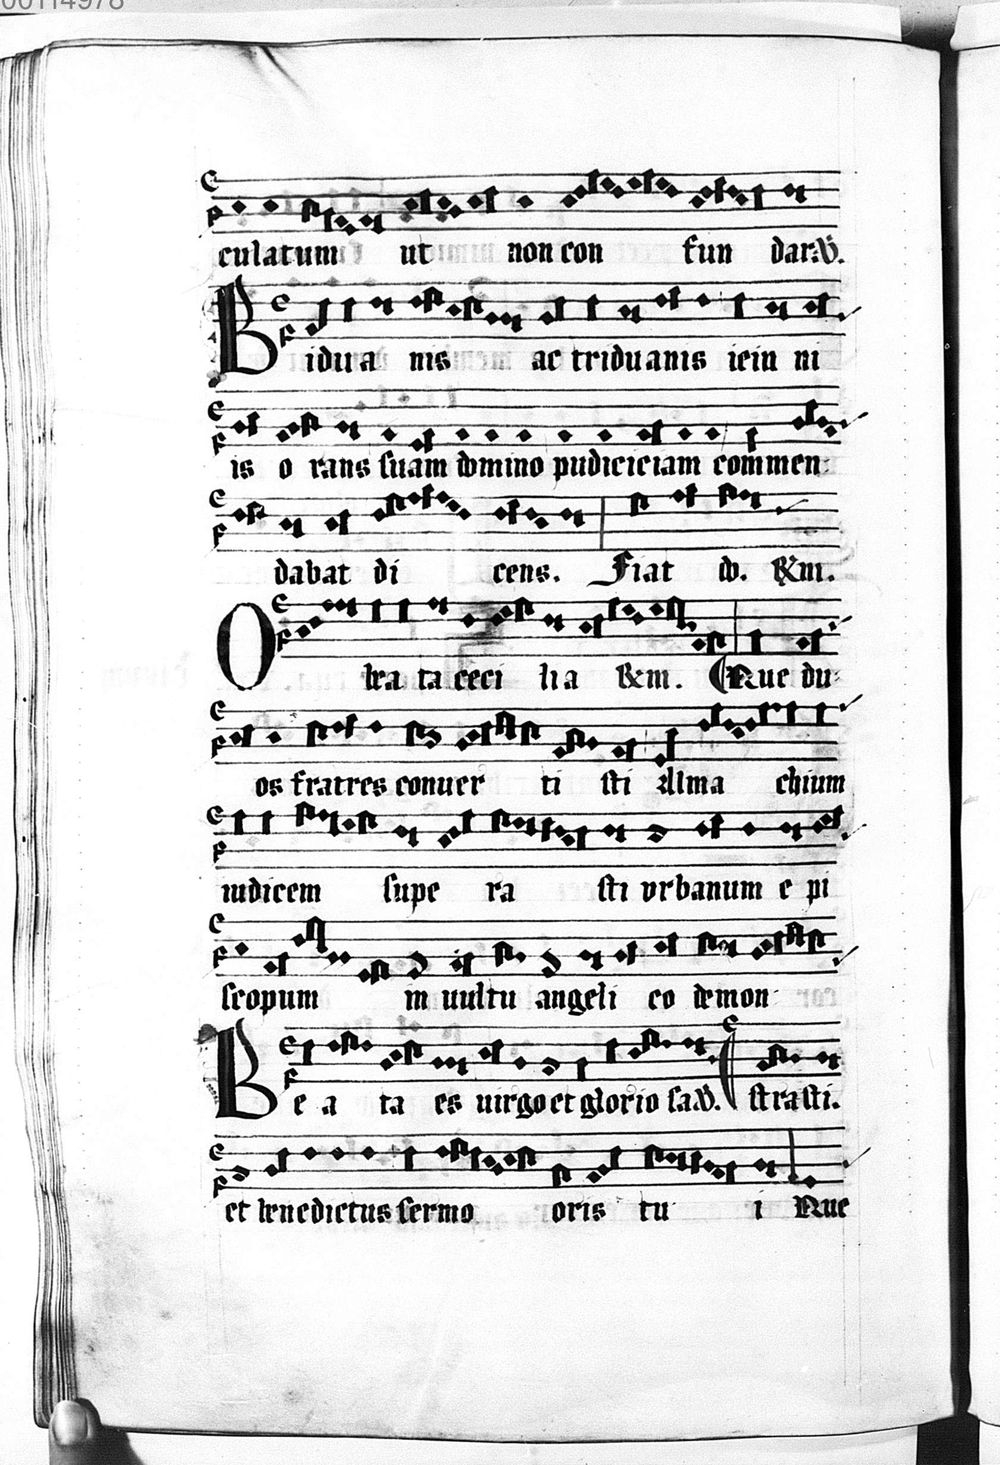 00114978
culatum ut non con fun dar. V.
Bidua nis ac triduanis ieiu ni
is o rans suam domino pudiciciam commen-
dabat di cens. Fiat do. R m.
O bea ta ceci lia R m. Que du-
os fratres conuer ti sti Alma chium
iudicem supe ra sti vrbanum e pi
scopum in uultu angeli co demon
Be a ta es uirgo et glorio sa V. strasti.
et benedictus sermo oris tu i Que